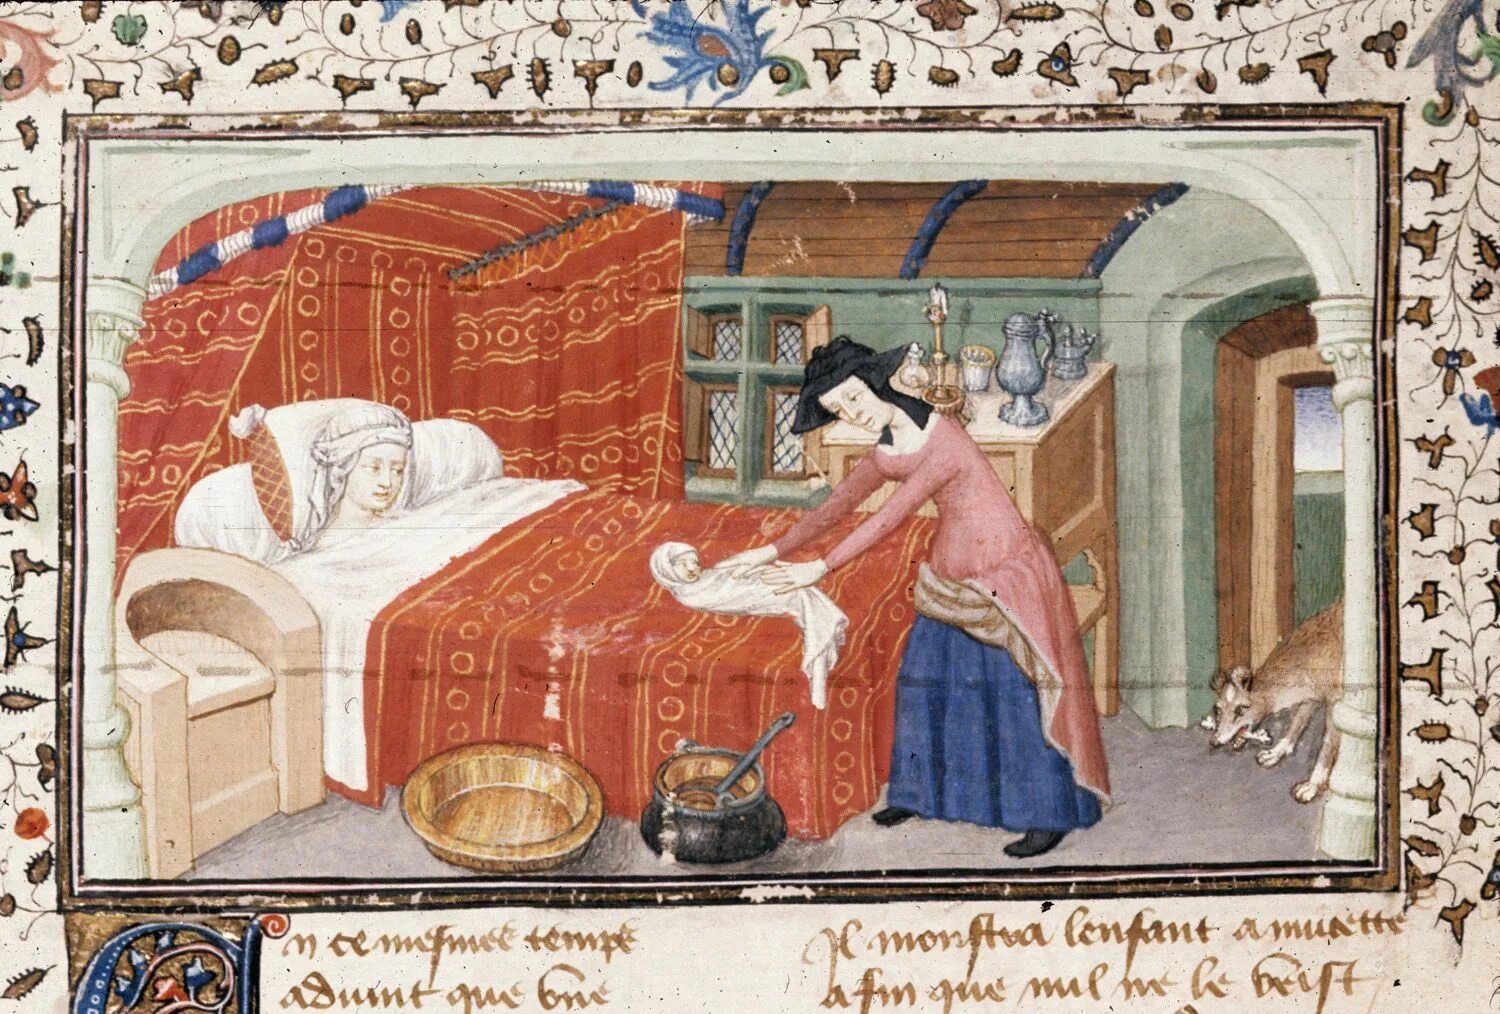 En ce mesmes temps
aduint que vne
Il monstra lenfant a mucette
afin que nul ne le veist